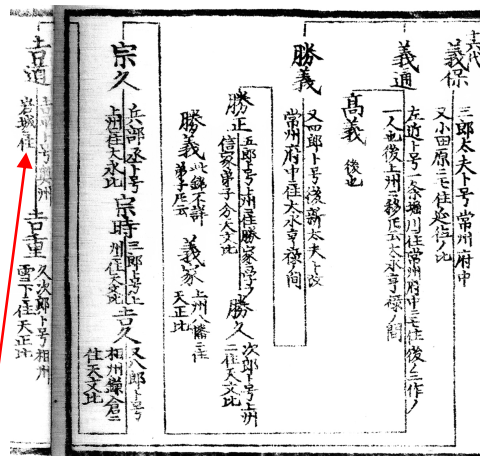 十六代
義保
三郎太夫ト号常州府中
又小田原ニモ住延位ノ比
義通
左近ト号一条堀川住常州府中ニモ住後ノ三作ノ
一人也後上州ニ移ル云大永享禄ノ間
高義 後也
勝義
又四郎ト号後新太夫ト改
常州府中住大永享禄ノ間
勝正
五郎ト号上州住勝家
信家弟子分天文比
勝久
次郎ト号上州
ニ住天文比
勝義
此銘不詳
弟子ト云
義家
上州八幡ニ住
天正比
宗久
兵部丞ト号
上州住大永比
宗時
三郎ト号上
州住天文比
吉久
又八郎ト号
相州鎌倉ニ
住天文比
吉道
ト号奥州
岩城ニ住
吉重
久次郎ト号相州
雪下ニ住天正比